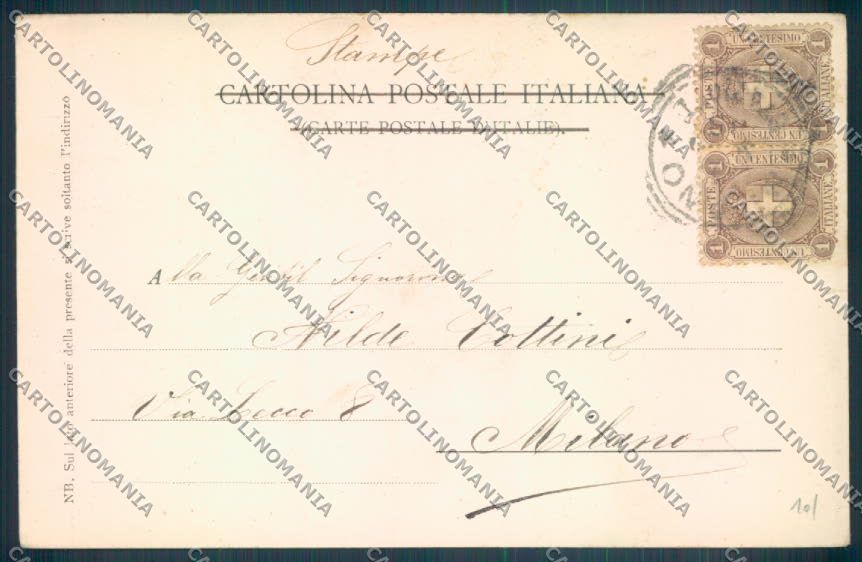 Stampe
CARTOLINA POSTALE ITALIANA
(CARTE POSTALE D'ITALIE).
UN CENTESIMO
1 1
POSTE ITALIANE
1 1
UN CENTESIMO
UN CENTESIMO
1 1
POSTE ITALIANE
1 1
UN CENTESIMO
Alla Gentil Signorina
Hilde Cottini
Via Lecco 8
Milano
NB. Sul lato anteriore della presente si scrive soltanto l'indirizzo
10/
CARTOLINOMANIA